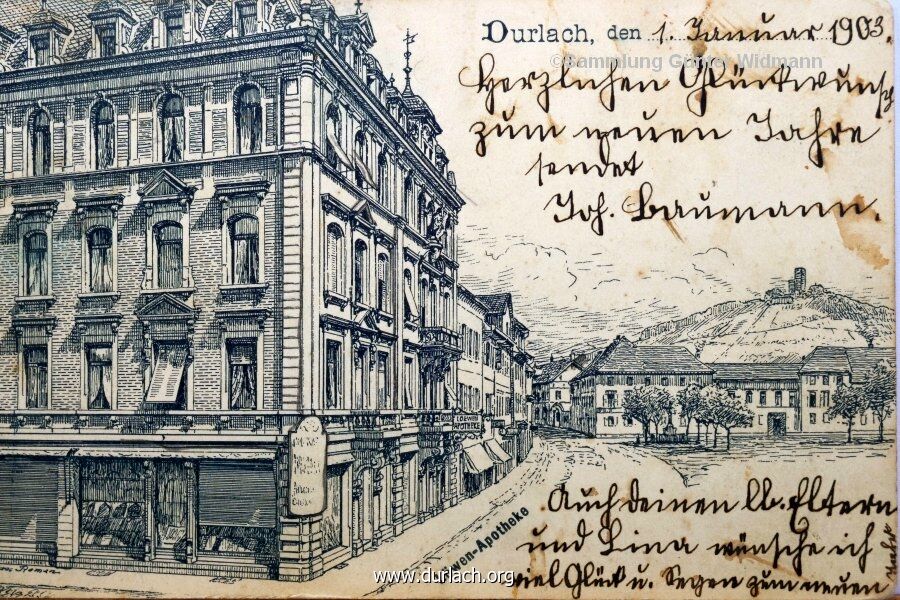 Durlach, den 1. Januar 1903.
©Sammlung Günter Widmann
Herzlichen Glückwunsch
zum neuen Jahre
sendet
Joh. Baumann.
LOEWEN
APOTHEKE
wen-Apotheke
Auch deinen lb. Eltern
und Lina wünsche ich
viel Glück u. Segen zum neuen
Jahr
www.durlach.org